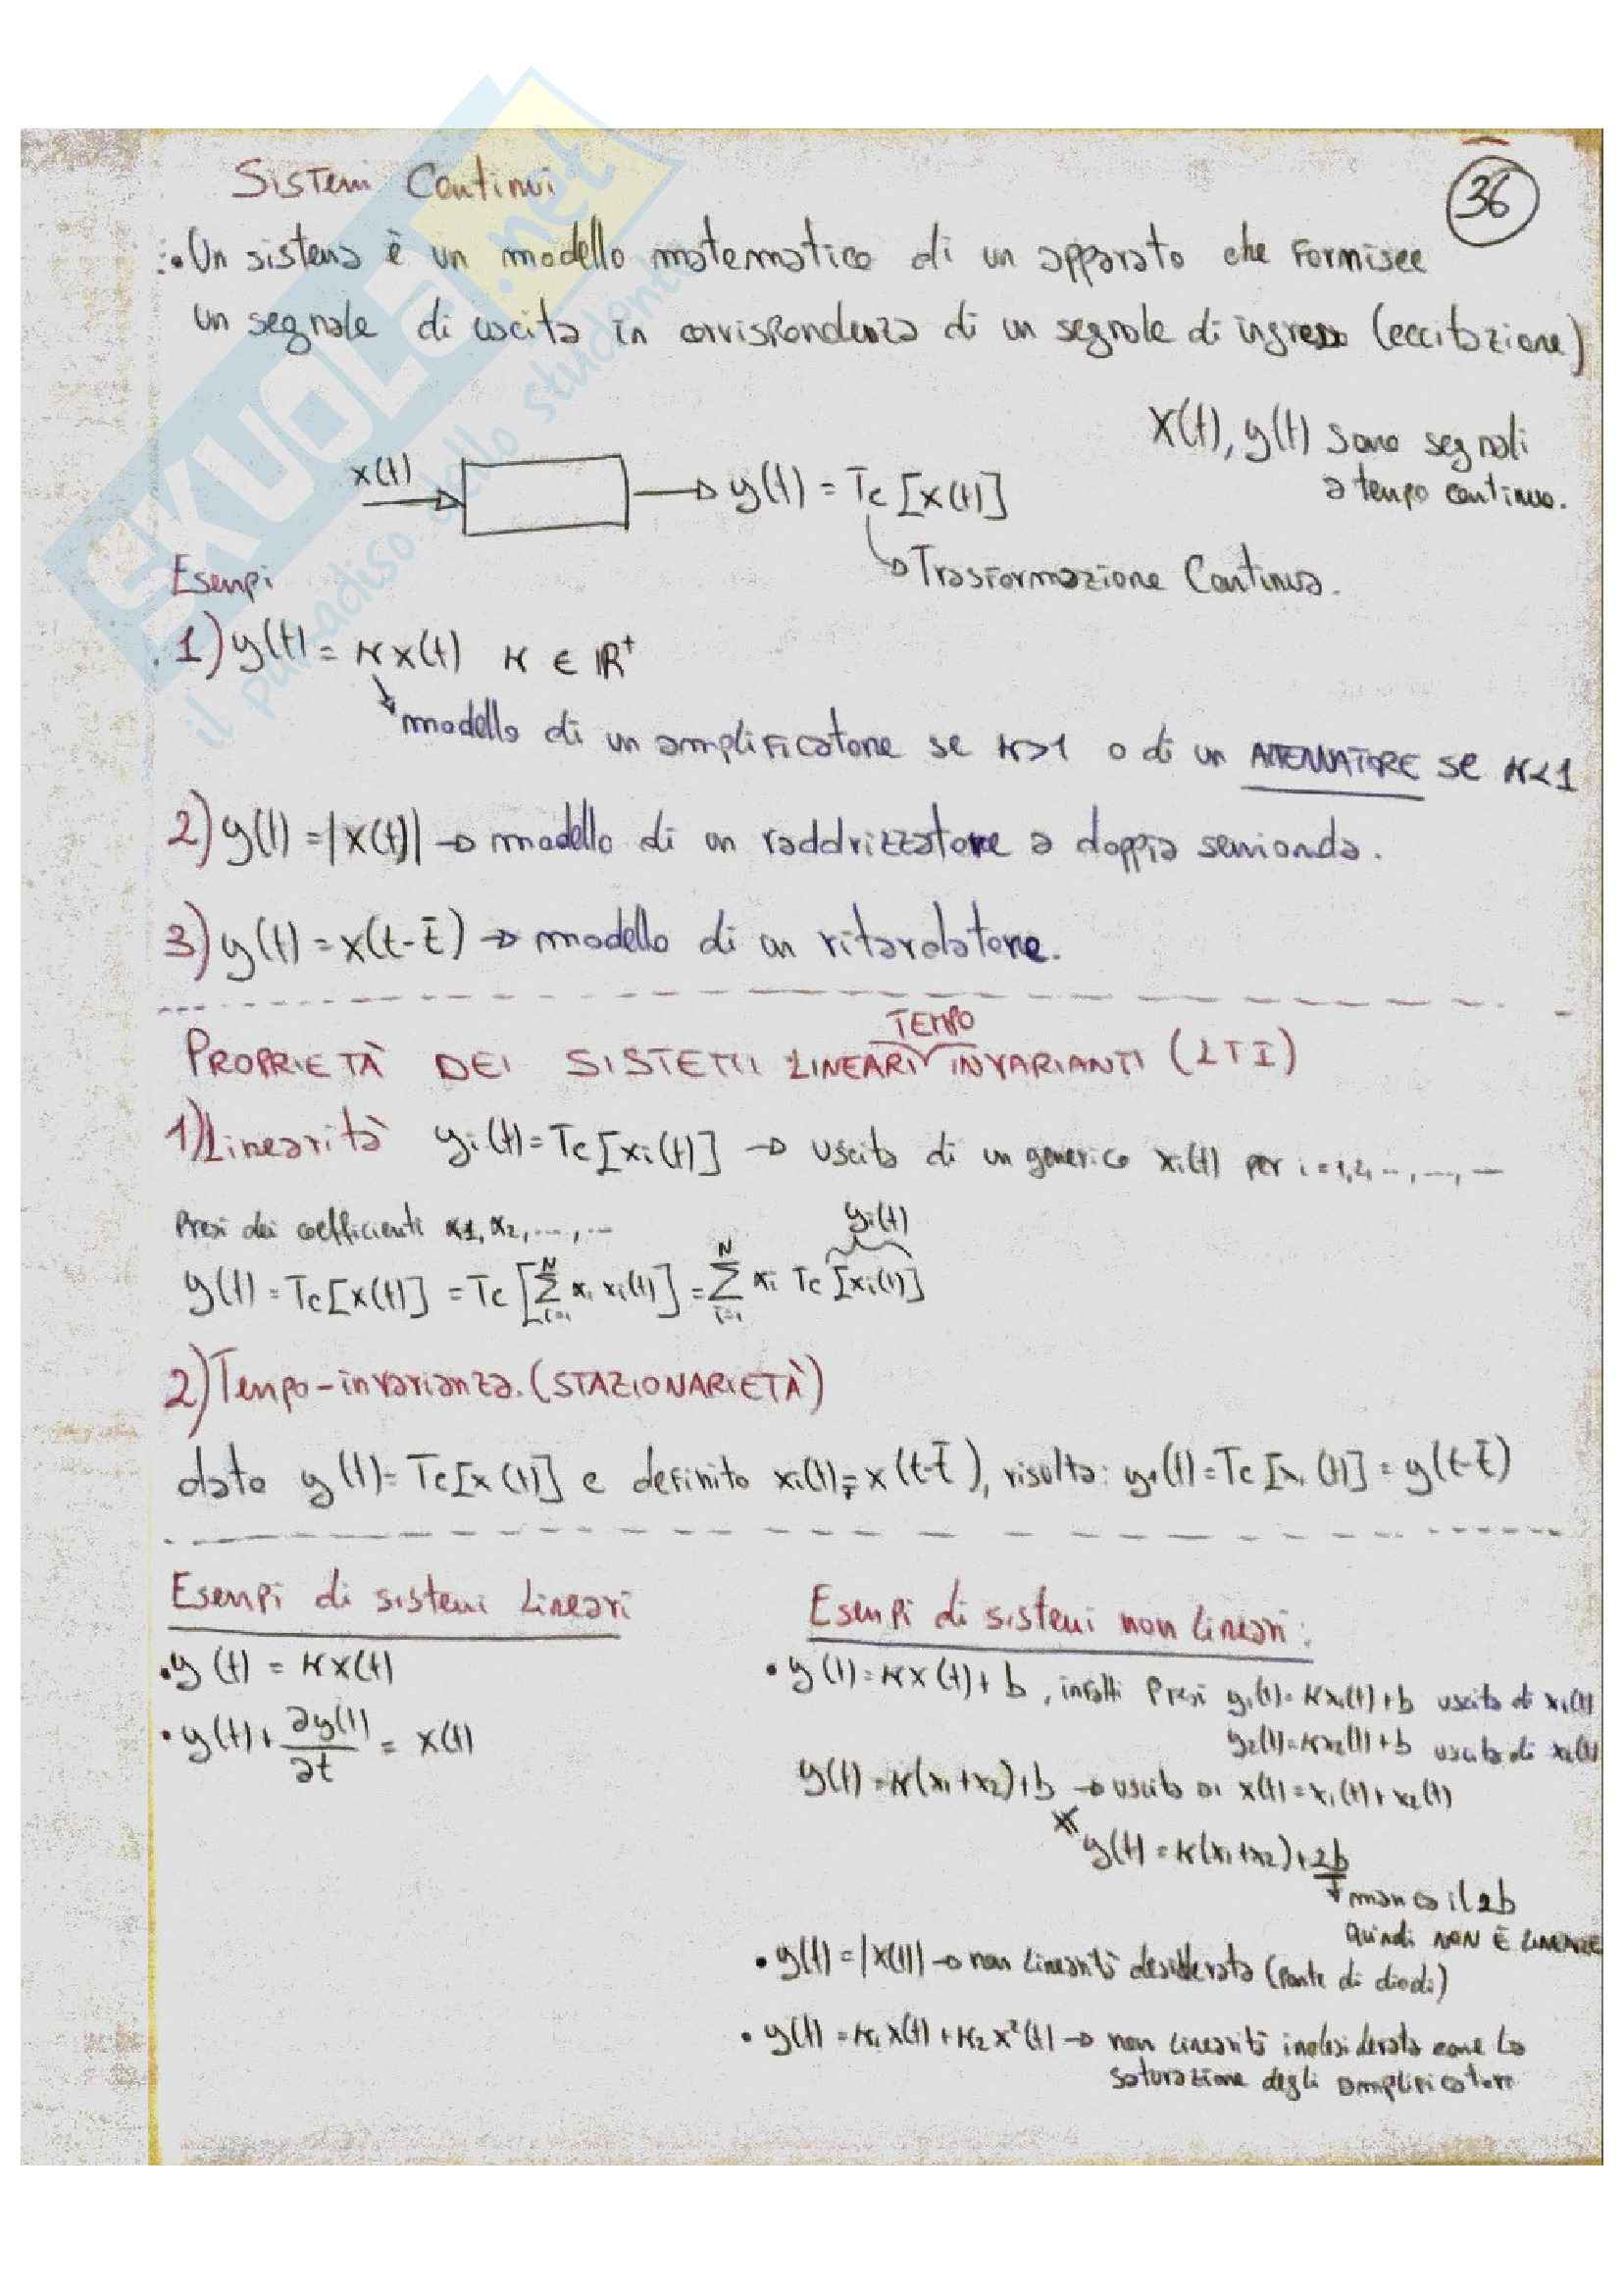 Sistemi Continui
36
• Un sistema è un modello matematico di un apparato che fornisce
un segnale di uscita in corrispondenza di un segnale di ingresso (eccitazione)
x(t), y(t) sono segnali
a tempo continuo.
x(t) → y(t) = Tc [x(t)]
→ Trasformazione Continua.
Esempi
1) y(t) = K x(t) K ∈ ℝ⁺
modello di un amplificatore se K>1 o di un ATTENUATORE se K<1
2) y(t) = |x(t)| → modello di un raddrizzatore a doppia semionda.
3) y(t) = x(t-t̄) → modello di un ritardatore.
PROPRIETÀ DEI SISTEMI LINEARI TEMPO INVARIANTI (LTI)
1) Linearità yi(t) = Tc [xi(t)] → uscita di un generico xi(t) per i = 1,2, ..., ..., ...
Presi dei coefficienti α1, α2, ..., ...
yi(t)
y(t) = Tc [x(t)] = Tc [Σ_{i=1}^{N} αi xi(t)] = Σ_{i=1}^{N} αi Tc [xi(t)]
2) Tempo-invarianza. (STAZIONARIETÀ)
dato y(t) = Tc [x(t)] e definito x1(t) = x(t-t̄), risulta: y1(t) = Tc [x1(t)] = y(t-t̄)
Esempi di sistemi Lineari
• y(t) = K x(t)
• y(t) + ∂y(t)/∂t = x(t)
Esempi di sistemi non lineari:
• y(t) = K x(t) + b, infatti Presi y1(t) = K x1(t) + b uscita di x1(t)
y2(t) = K x2(t) + b uscita di x2(t)
y(t) = K(x1+x2) + b → uscita di x(t) = x1(t) + x2(t)
≠ y(t) = K(x1+x2) + 2b
manca il 2b
quindi NON È LINEARE
• y(t) = |x(t)| → non linearità desiderata (ponte di diodi)
• y(t) = K1 x(t) + K2 x²(t) → non linearità indesiderata come la
saturazione degli amplificatori
SKUOLA.net
il paradiso dello studente